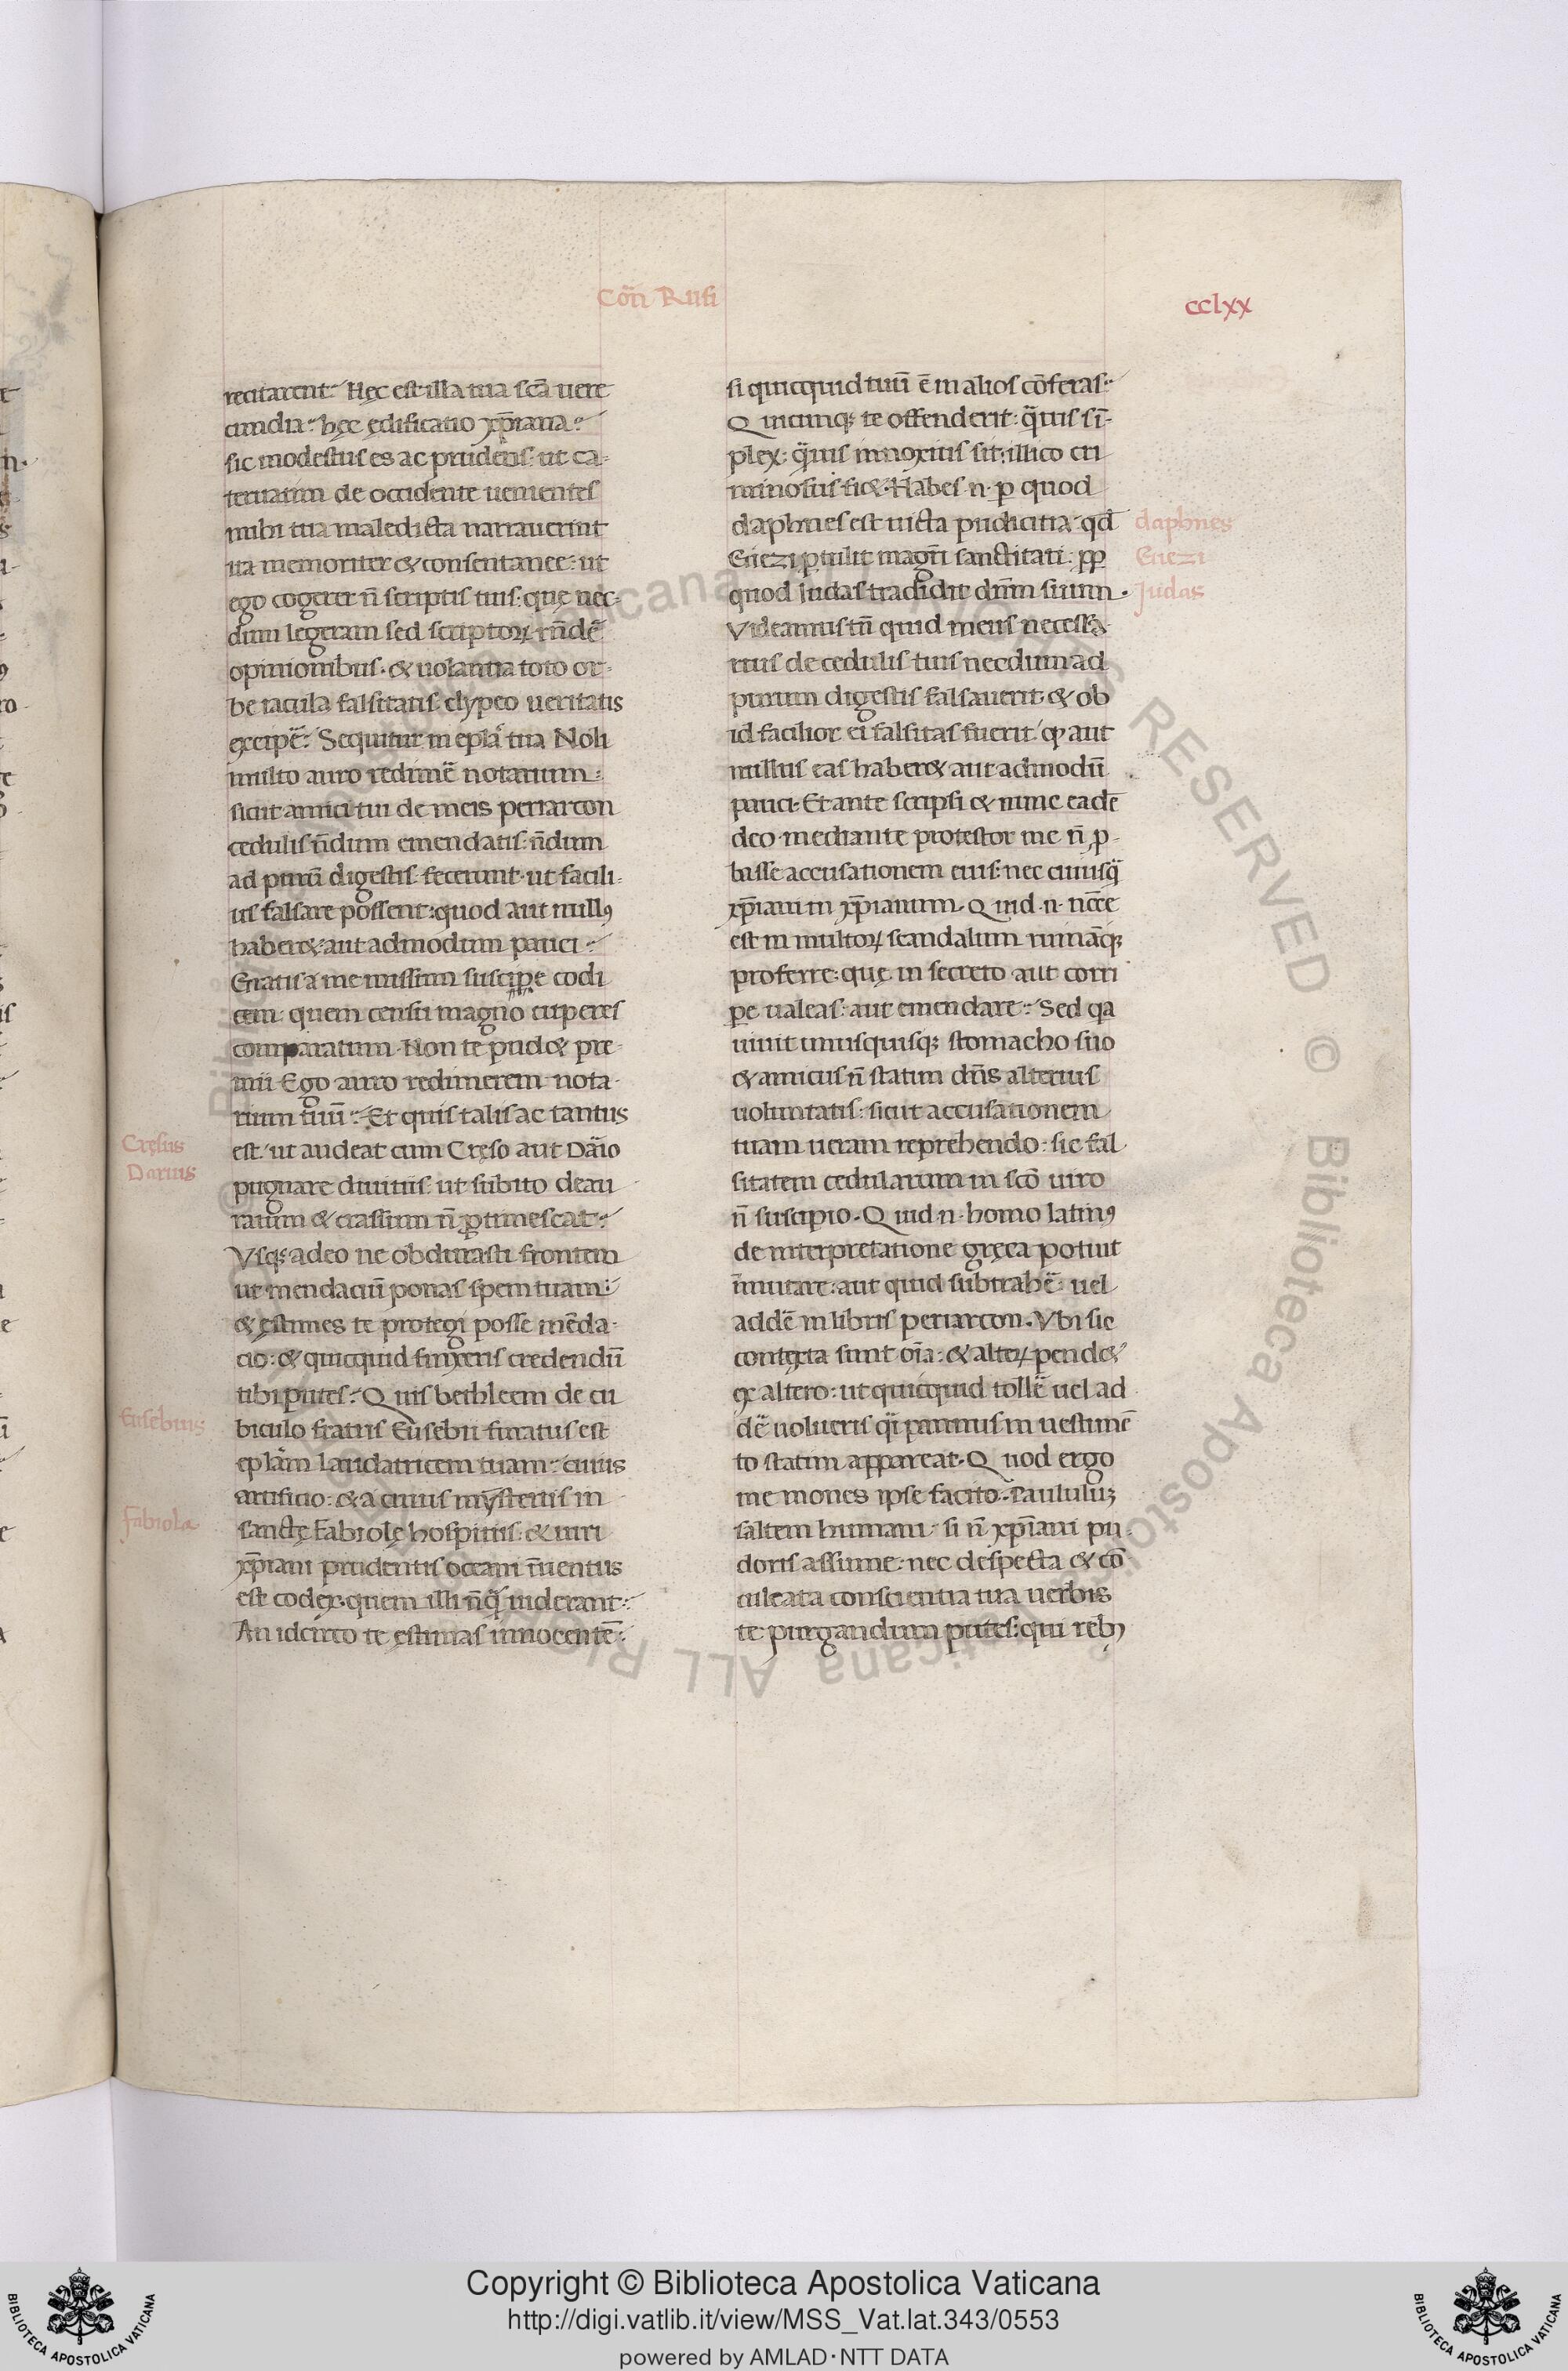 Cōn Rufi
cclxx
recitarent. Hęc est illa tua sc̄a uere
cundia: hęc ędificatio xp̄iana:
sic modestus es ac prudens: ut ca-
teruatim de occidente uenientes
mihi tua maledicta narrauerint
ita memoriter & consentanee: ut
ego cogerer n̄ scriptis tuis: quę nec-
dum legeram sed scriptoꝝ rn̄dē
opinionibus. & uolantia toto or-
be iacula falsitatis clypeo ueritatis
excipē: Sequitur in epl̄a tua Noli
multo auro redimē notarium:
sicut amici tui de meis periarcon
cedulis n̄dum emendatis: n̄dum
ad purū digestis fecerunt. ut facili-
us falsare possent: quod aut nullꝰ
haber& aut admodum pauci:
Gratis a me missum suscipe codi
cem: quem censu magno cuperes
comparatum. Non te pud& pre-
mii. Ego auro redimerem nota-
rium tuū: Et quis talis ac tantus
est: ut audeat cum Cręso aut Dario
pugnare diuitiis: ut subito deau
ratum & crassum n̄ ꝑtimescat:
Vsqꝫ adeo ne obdurasti frontem
ut mendaciū ponas spem tuam:
& ęstimes te protegi posse mēda-
cio: & quicquid finxeris credendū
tibi putes: Quis bethleem de cu
biculo fratris Eusebii furatus est
epl̄am laudatricem tuam: cuius
artificio: & a cuius mysteriis in
sanctę Fabiolę hospitiis: & uiri
xp̄iani prudentis oceani īuentus
est codex: quem illi nūq̄ uiderant:
An idcirco te ęstimas innocentē:
Cręsus
Darius
Eusebius
Fabiola
si quicquid tuū ē in alios cōferas:
Quicunqꝫ te offenderit: q̄uis sī-
plex: q̄uis innoxius sit: illico cri
minosus fi&. Habes .n. ꝑ quod
daphnes est uicta pudicitia: qd̄
Giezi ꝑtulit magn̄i sanctitati: pp̄
quod iudas tradidit dn̄m suum.
Videamus tn̄ quid meus necessa
rius de cedulis tuis necdum ad
purum digestis falsauerit: & ob
id facilior ei falsitas fuerit: qꝫ aut
nullus eas haber& aut admodū
pauci. Et ante scripsi & nunc eadē
deo mediante protestor me n̄ ꝓ-
basse accusationem eius: nec cuiusq̄
xp̄iani in xp̄ianum. Quid .n. nc̄ce
est in multoꝝ scandalum ruināqꝫ
proferre: quę in secreto aut corri
pe ualeas: aut emendare: Sed qa
uiuit unusquisqꝫ stomacho suo
& amicus n̄ statim dn̄s alterius
uoluntatis: sicut accusationem
tuam ueram reprehendo: sic fal
sitatem cedularum in sc̄o uiro
n̄ suscipio. Quid .n. homo latinꝰ
de interpretatione gręca potuit
īmutare: aut quid subtrahē: uel
addē in libris periarcon. Vbi sic
contexta sunt oīa: & alteꝝ pend&
ex altero: ut quicquid tollē uel ad
dē uolueris q̄i pannus in uestimē
to statim appareat. Quod ergo
me mones ipse facito. Paululuꝫ
saltem humani: si n̄ xp̄iani pu
doris assume: nec despecta & cō
culcata conscientia tua uerbis
te purgandum putes: qui rebꝰ
daphnes
Giezi
Judas
Copyright © Biblioteca Apostolica Vaticana
http://digi.vatlib.it/view/MSS_Vat.lat.343/0553
powered by AMLAD·NTT DATA